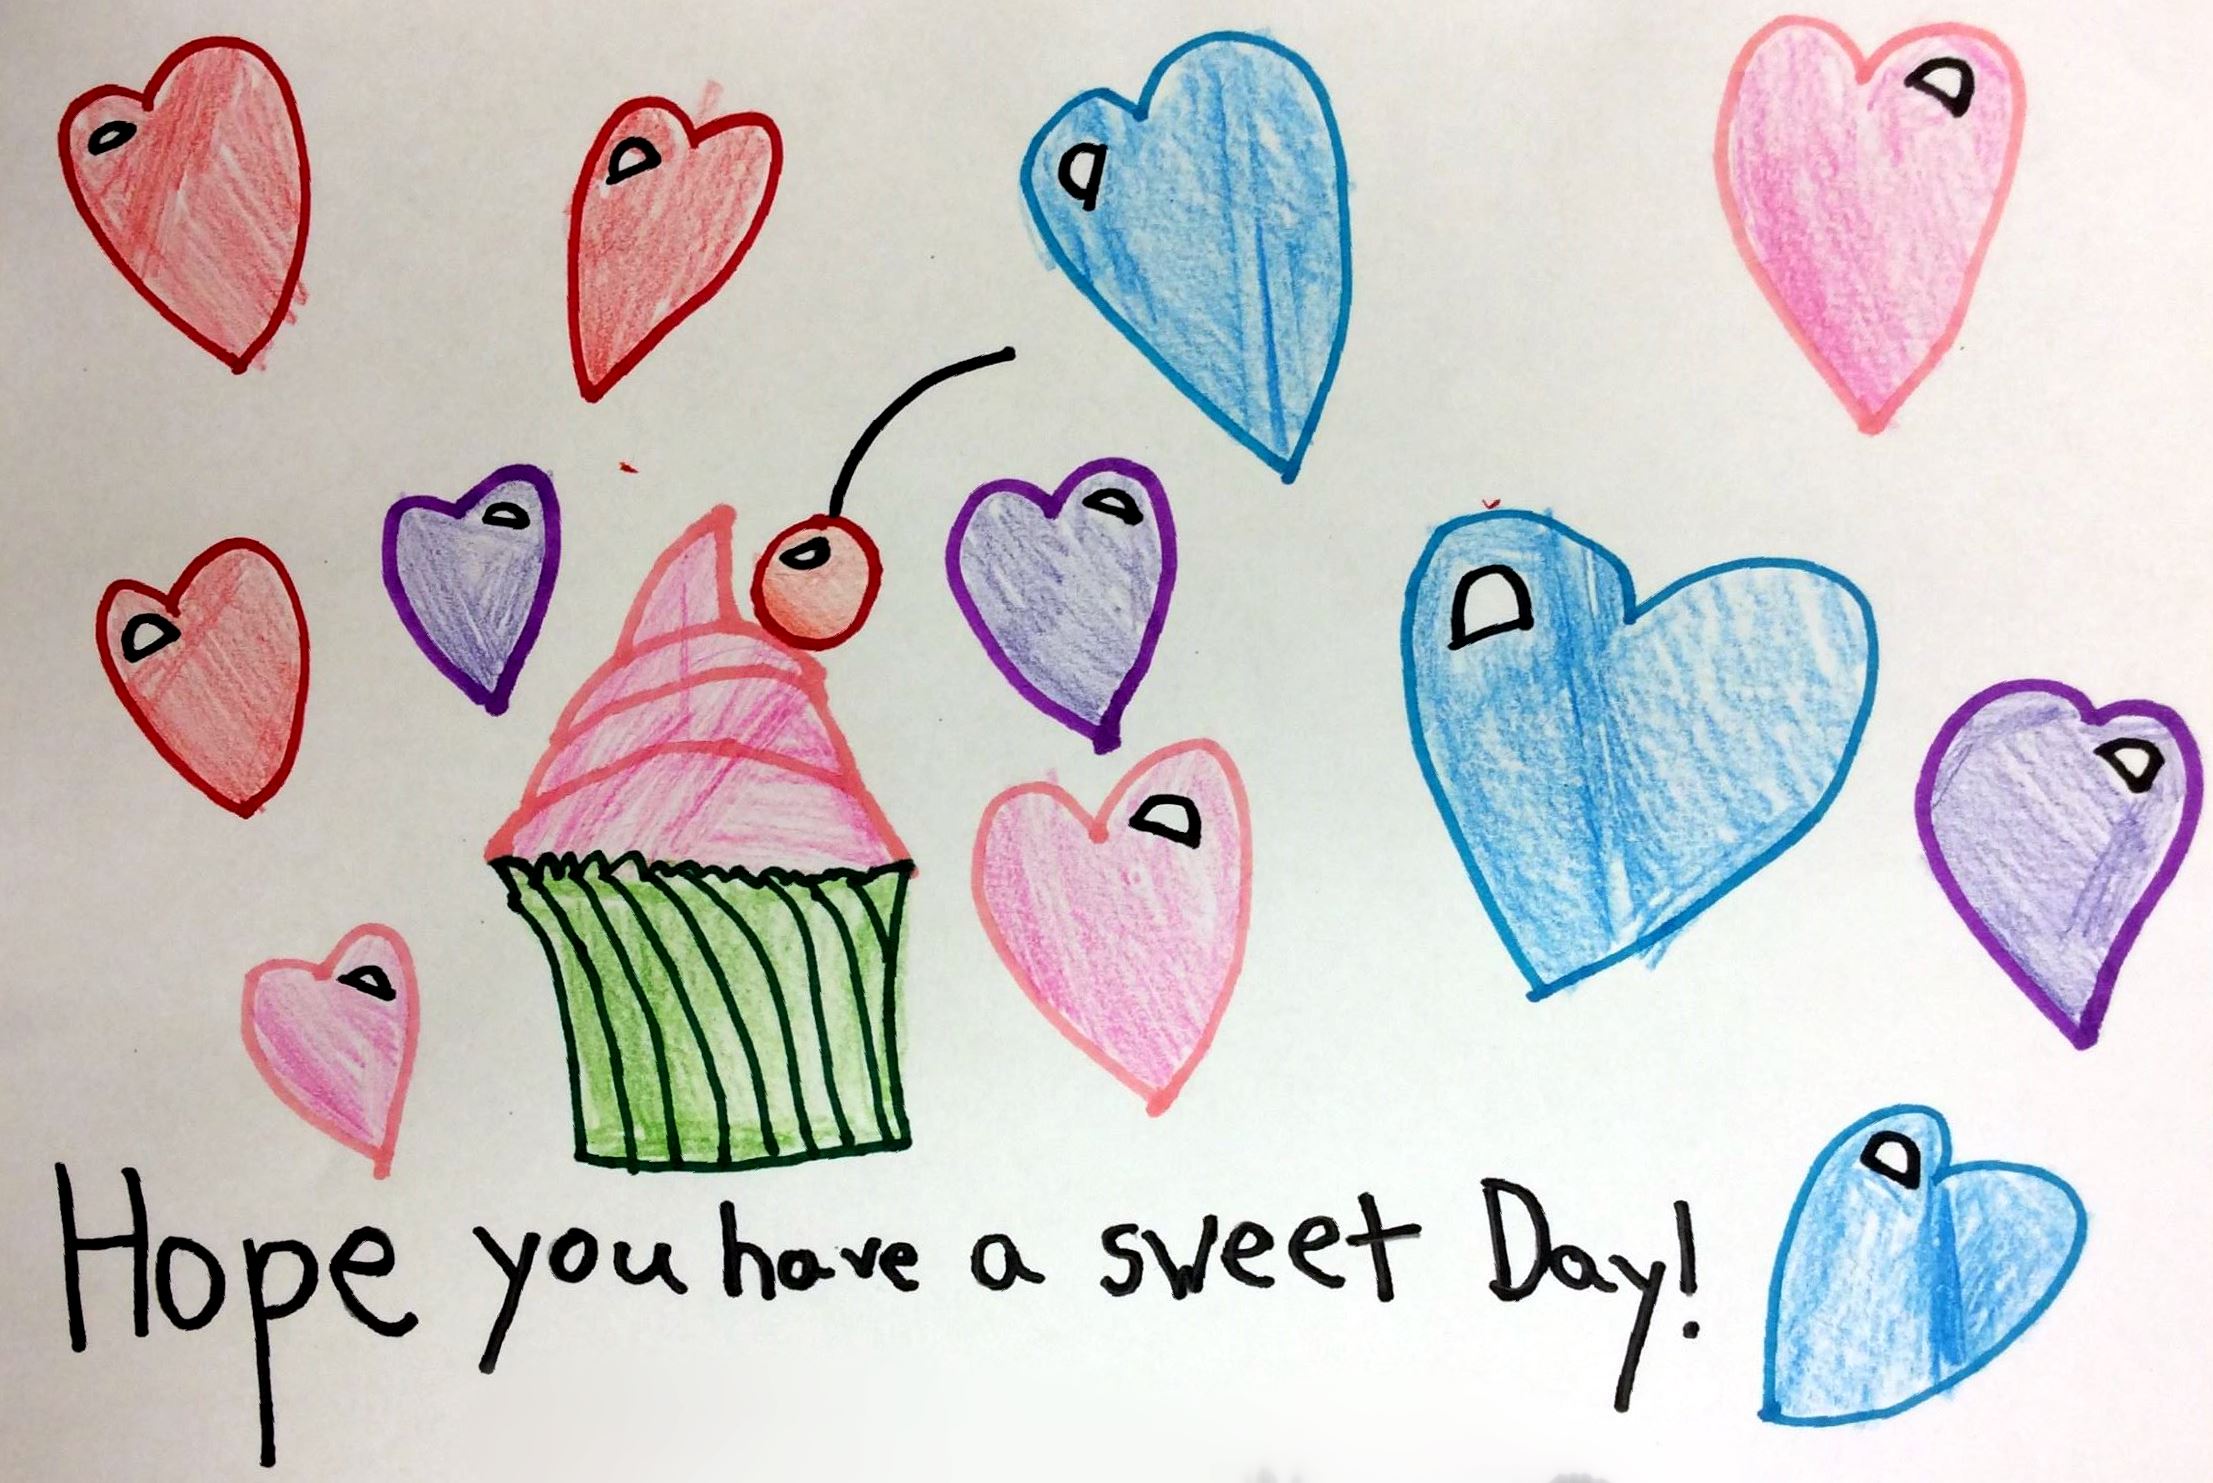 Hope you have a sweet Day!